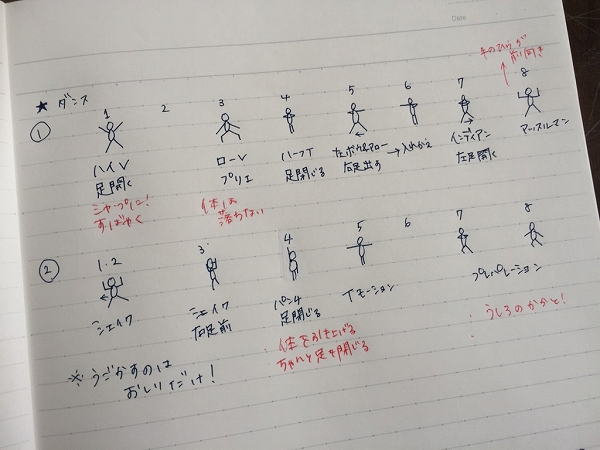 Date
★ ダンス
手のひらが
前向き
① 1 2 3 4 5 6 7 8
ハイV ローV ハーフT 左ボウ&アロー →入れかえ インディアン マッスルマン
足開く プリエ 足閉じる 右足出す 左足開く
シャープに! 体は
すばやく 落ちない
② 1.2 3 4 5 6 7 8
シェイク シェイク パンチ Tモーション プレパレーション
右足前 足閉じる
体を引き上げる うしろのかかと!
ちゃんと足を閉じる
※うごかすのは
おしりだけ!